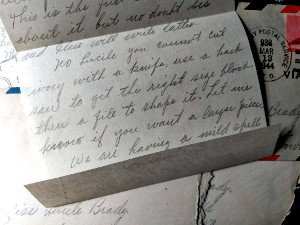 This is the first
about it but no doubt Sis
and Glen will write later
No Lucile you cannot cut
ivory with a knife, use a hack
saw to get the right size block
then a file to shape it. Let me
know if you want a larger piece
We are having a mild spell
POSTAL
938
MAR
13
1944
Miss Lucile Brady